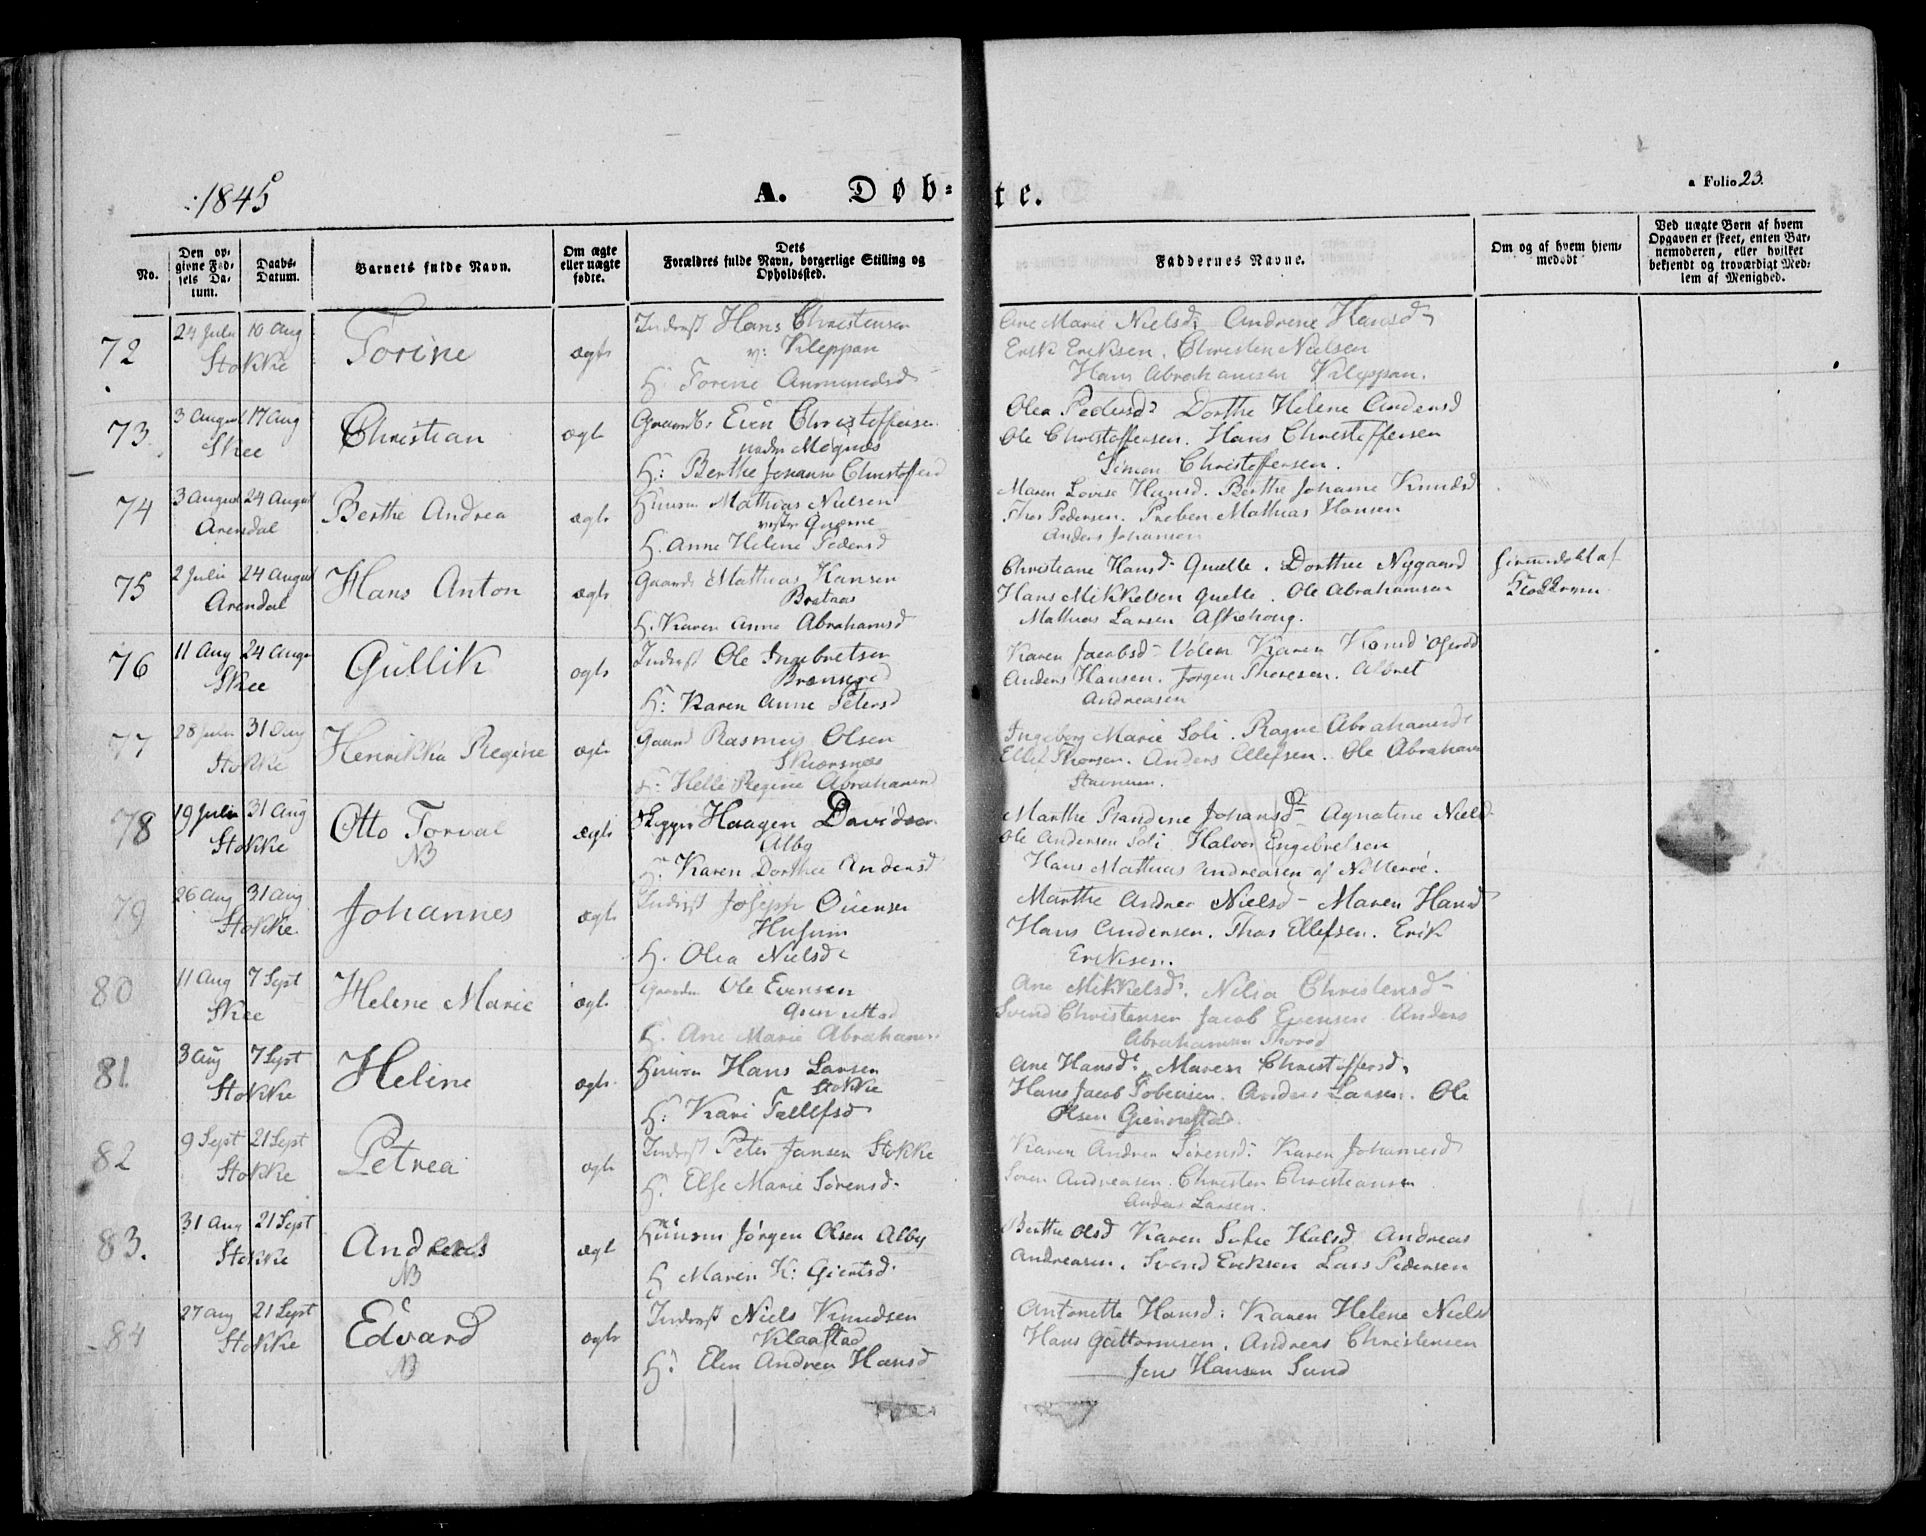 1845
A. Døb-
te.
a Folio 23.
No.
Den op-
givne Fød-
sels Da-
tum.
Daabs-
Datum.
Barnets fulde Navn.
Om ægte
eller uægte
fødte.
Dets
Forældres fulde Navn, borgerlige Stilling og
Opholdssted.
Faddernes Navne.
Om og af hvem hjem-
medøbt
Ved uægte Børn af hvem
Opgaven er skeet, enten Bar-
nemoderen, eller hvilket
bekjendt og troværdigt Med-
lem af Menighed.
72
24 Julii 10 Aug
Stokke
Torine
ægte
Inderst Hans Christensen
v: Kleppan
H. Torine Anmundsd
Ane Marie Nielsd: Andrene Hansd
Erik Eriksen. Christen Nielsen
Hans Abrahamsen Kleppan.
73
3 August 17 Aug
Skee
Christian
ægte
Gaardb: Even Christoffersen
H: Berthe Johanne Christoffersd
Olea Pedersd: Dorthe Helene Andersd
Ole Christoffersen. Hans Christoffersen
Simon Christoffersen.
74
3 August 24 August
Arendal
Berthe Andrea
ægte
Huusm Mathias Nielsen
H. Anne Helene Pedersd
Maren Lovise Hansd. Berthe Johanne Knudsd
Thor Pedersen. Preben Mathias Hansen
Anders Johansen
75
2 Julii 24 August
Arendal
Hans Anton
ægte
Gaardb Mathias Hansen
Brataas
H. Karen Anne Abrahamsd
Christiane Hansd Quelle. Dorthee Nygaard
Hans Mikkelsen Quelle. Ole Abrahamsen
Mathias Larsen Askehoug.
Hjemmedøbt af
76
11 Aug 24 Aug
Skee
Gullik
ægte
Inderst Ole Ingebretsen
H: Karen Anne Petersd
Karen Jacobsd Valen Karen Hansd
Anders Hansen. Jørgen Thoresen. Albret
Andreasen
77
28 Julii 31 Aug
Stokke
Henrikka Regine
ægte
Gaard Rasmus Olsen
Skiærsnæs
H: Helle Regine Abrahamsd
Ingeborg Marie Soli. Ragne Abrahamsd
Ellef Thorsen. Anders Ellefsen. Ole Abraham
Stavnum.
78
19 Julii 31 Aug
Stokke
Otto Torval
NB
ægte
Skipper Haagen Davidsen
Alby
H: Karen Dorthea Andersd
Marthe Randine Johansd Agnatine Nielsd
Ole Andersen Soli Halvor Engebretsen
Hans Mathias Andreasen af Nøtterøe.
79
26 Aug 31 Aug
Stokke
Johannes
ægte
Inderst Joseph Evensen
Husum
H. Olea Nielsd
Marthe Andrea Nielsd Maren Hansd
Hans Andersen. Thor Ellefsen. Erik
Eriksen.
80
11 Aug 7 Sept
Skee
Helene Marie
ægte
Gaardm Ole Evensen
H: Ane Marie Abrahams
Ane Mikkelsd. Nilia Christensd
Svend Christensen Jacob Evensen Anders
Abrahamsen
81
3 Aug 7 Sept
Stokke
Heline
ægte
Huusm Hans Larsen
Stokke
H: Kari Tallefsd
Ane Hansd. Maren Christoffersd.
Hans Jacob Tobensen. Anders Larsen. Ole
Olsen
82
9 Sept 21 Sept
Stokke
Petrea
ægte
Inderst Peter Jansen Stokke
H. Else Marie Sørensd.
Karen Andrea Sørensd: Karen Johannesd
Søren Andreasen. Christen Christiansen
Anders Larsen.
83.
31 Aug 21 Sept
Stokke
Andreas
NB
ægte
Huusm Jørgen Olsen Alby
H Maren K: Giertsd.
Berthe Olsd Karen Sofie Halsd Andreas
Andreasen. Svend Eriksen Lars Pedersen
84
27 Aug 21 Sept
Stokke
Edvard
NB
ægte
Inderst Niels Knudsen
Klaastad
H: Elen Andrea Hansd
Antonette Hansd: Karen Helene Niels
Hans Guttormsen. Andreas Christensen
Jens Hansen Sund